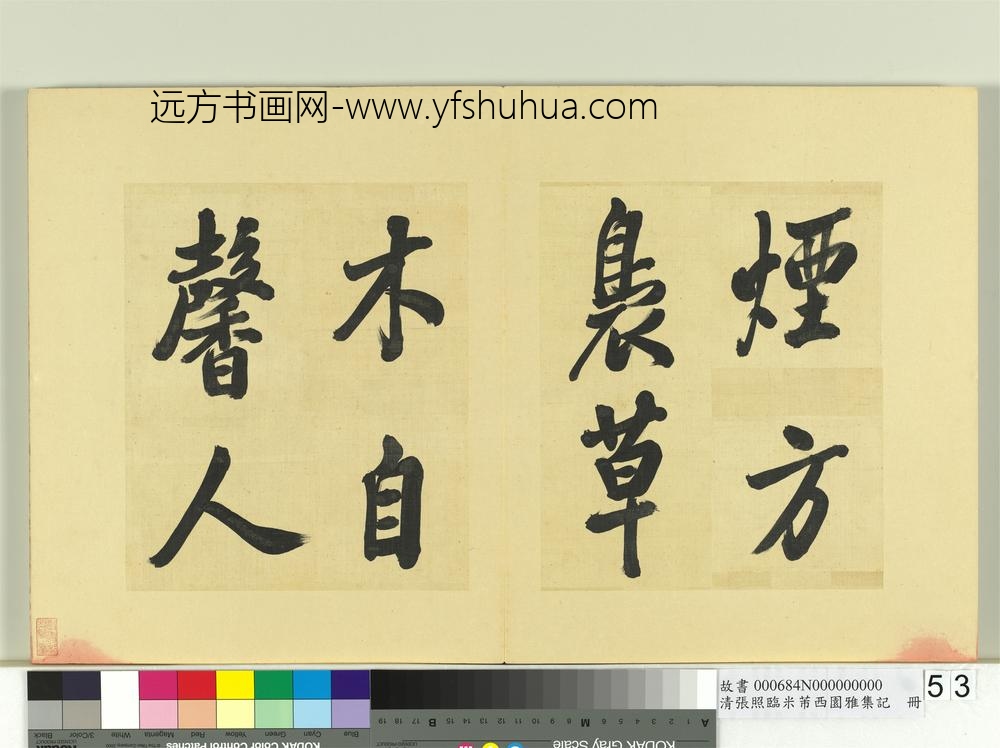 远方书画网-www.yfshuhua.com
煙方
裊草
木自
馨人
故書 000684N000000000
清張照臨米芾西園雅集記 冊
53
Blue
Cyan
Green
Yellow
Red
Magenta
White
3/Color
Black
KODAK Color Control Patches
KODAK Gray Scale
A 1 2 3 4 5 6 M 8 9 10 11 12 13 14 15 B 17 18 19